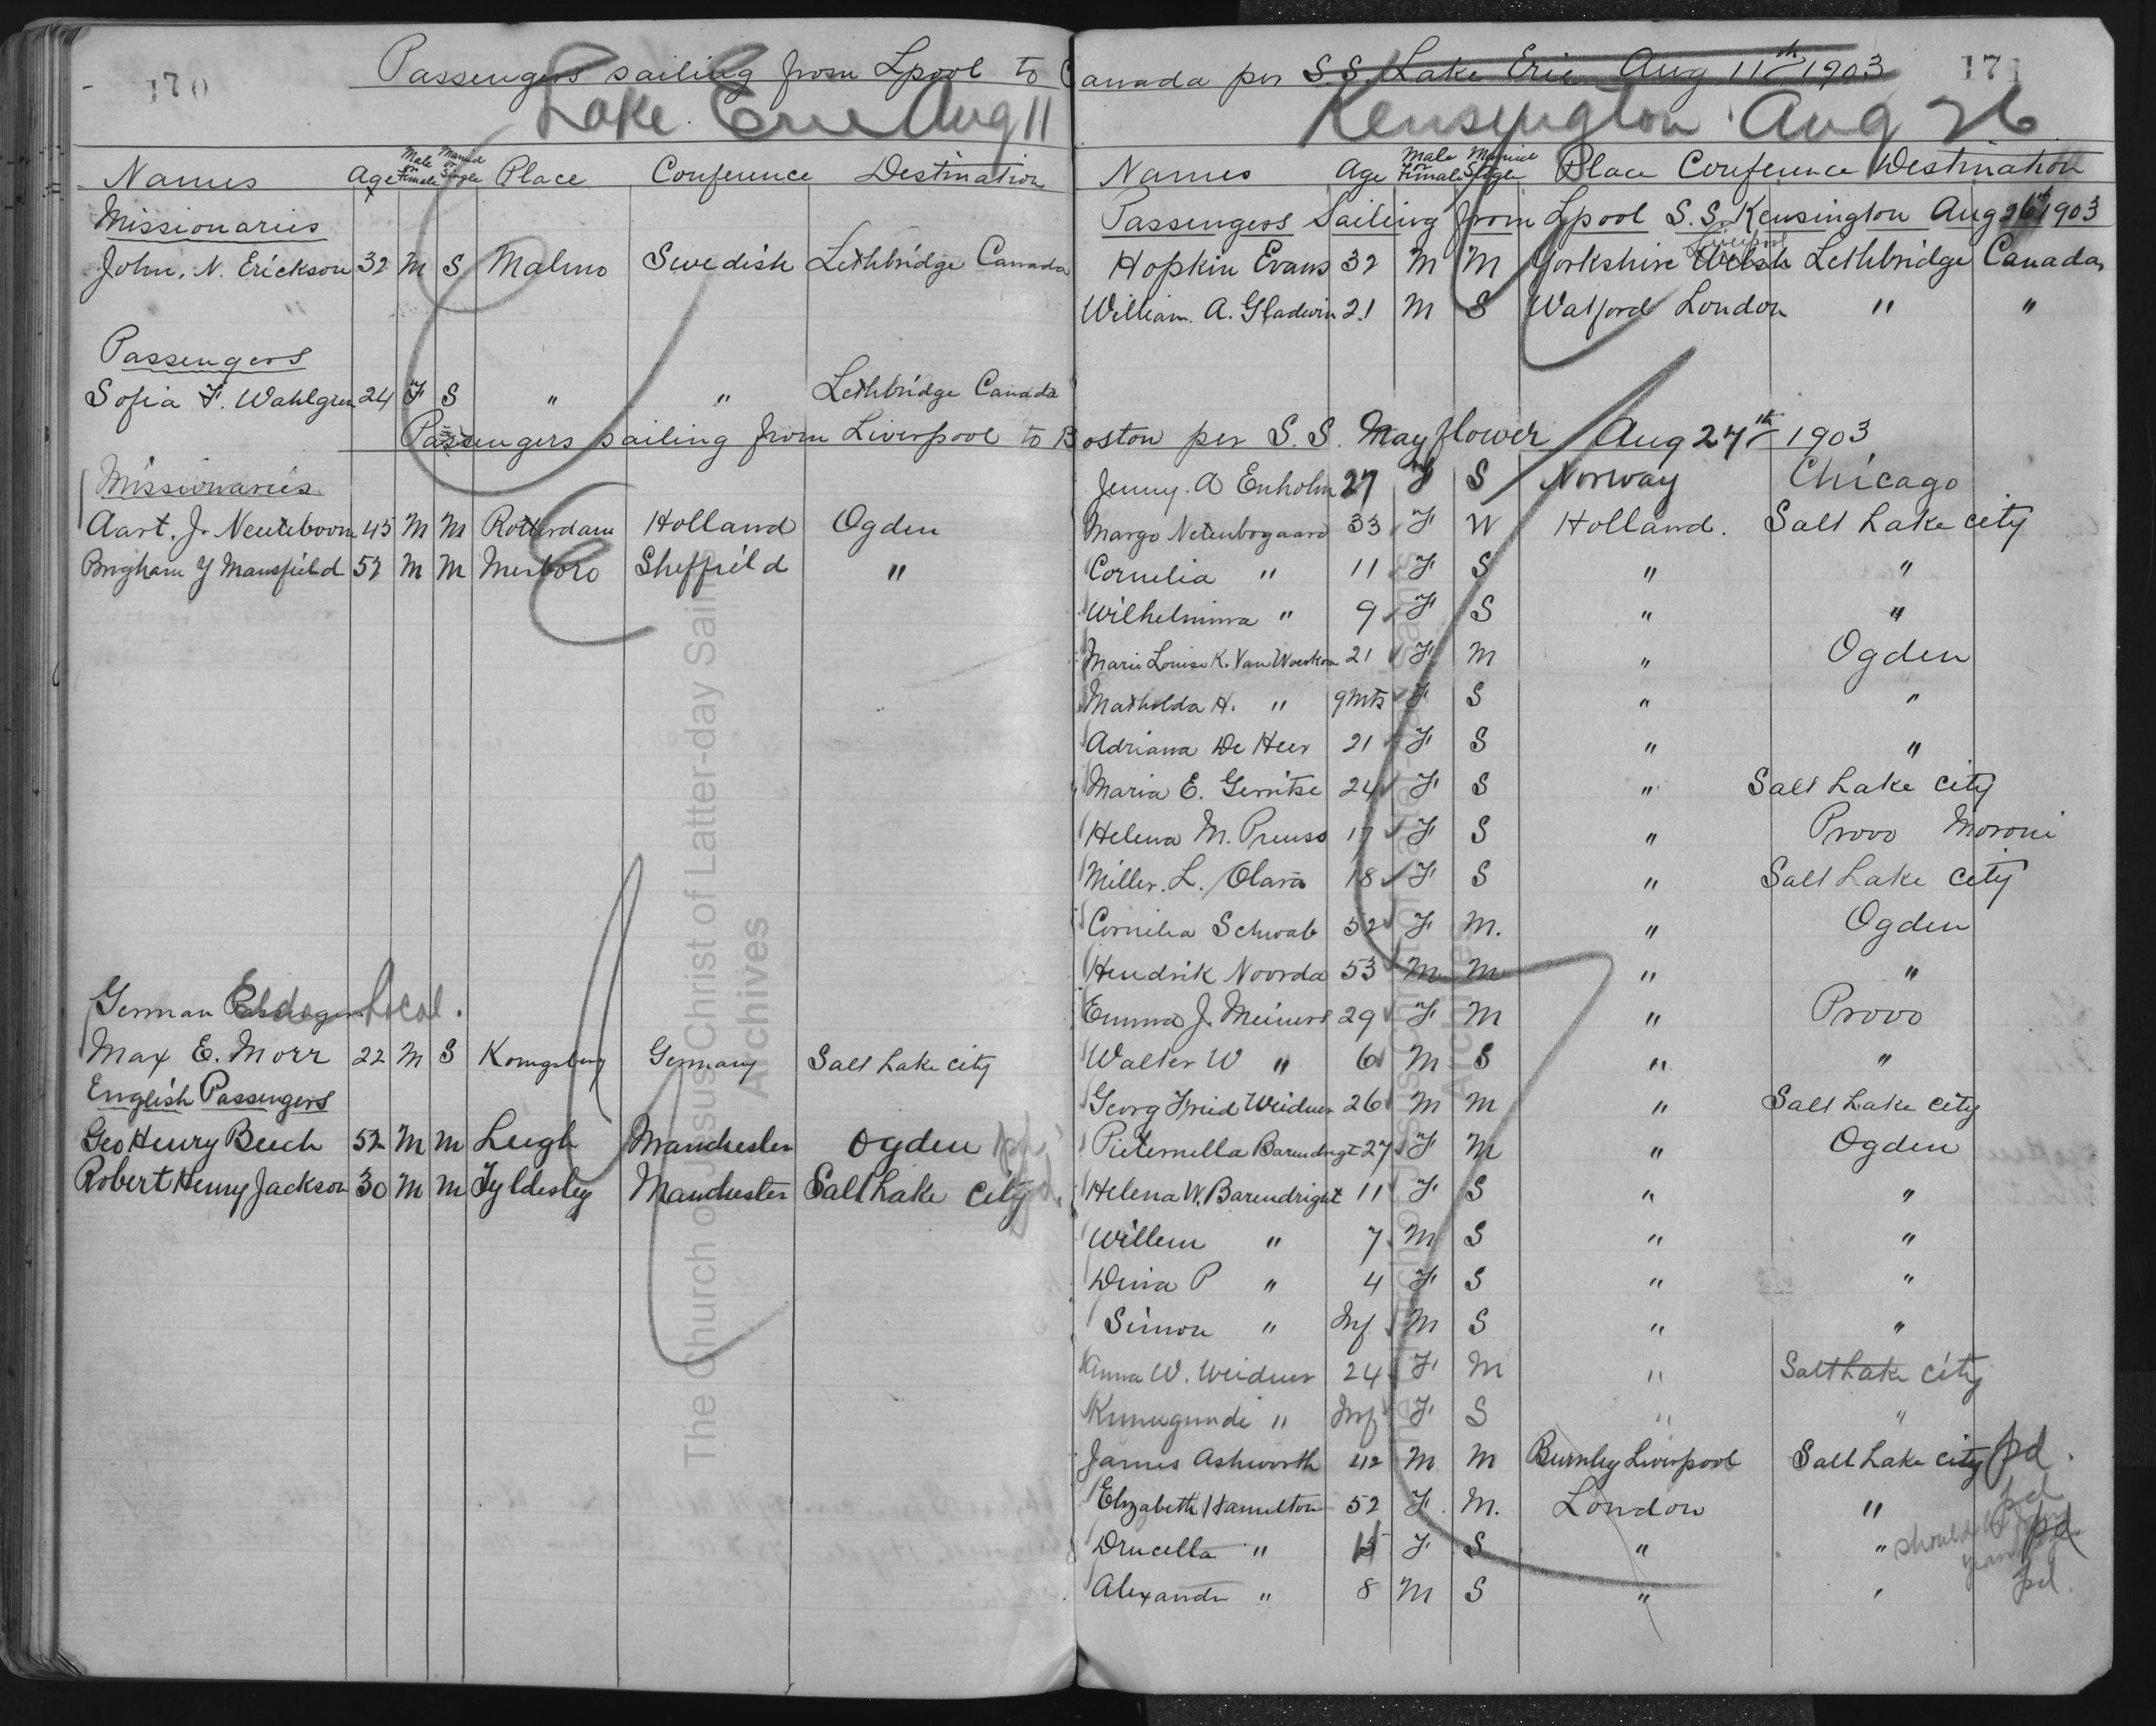 170
Passengers sailing from Lpool to Canada per S.S. Lake Erie Aug 11th 1903
171
Lake Erie Aug 11
Kensington Aug 26
Names Age Male or Female Married or Single Place Conference Destination
Missionaries
John. N. Erickson 32 M S Malmo Swedish Lethbridge Canada
Passengers
Sofia F. Wahlgren 24 F S " " Lethbridge Canada
Names Age Male or Female Married Single Place Conference Destination
Passengers Sailing from Lpool S.S. Kensington Aug 26th 1903
Liverpool
Hopkin Evans 32 M M Yorkshire Welsh Lethbridge Canada
William. A. Gladwin 21 M S Watford London " "
Passengers sailing from Liverpool to Boston per S.S. Mayflower Aug 27th 1903
Missionaries
Aart. J. Neuteboom 45 M M Rotterdam Holland Ogden
Brigham Y Mansfield 52 M M Mexboro Sheffield "
German Elder Local.
Max E. Morr 22 M S Konigsberg Germany Salt Lake city
English Passengers
Geo Henry Beech 52 M M Leigh Manchester Ogden pd
Robert Henry Jackson 30 M M Tyldesley Manchester Salt Lake City
Jenny. A Enholm 27 F S Norway Chicago
Margo Netenbogaard 33 F W Holland. Salt Lake city
Cornelia " 11 F S " "
Wilhelmina " 9 F S " "
Marie Louise K. Van Woerkom 21 F M " Ogden
Matholda H. " 9 mts F S " "
Adriana De Heer 21 F S " "
Maria E. Gerritse 24 F S " Salt Lake city
Helena M. Preuss 17 F S " Provo Moroni
Miller. L. Clara 18 F S " Salt Lake city
Cornelia Schwab 52 F M. " Ogden
Hendrik Noorda 53 M M " "
Emma J. Meiners 29 F M " Provo
Walter W " 6 M S " "
Georg Fried Weidner 26 M M " Salt Lake city
Pieternella Barendregt 27 F M " Ogden
Helena W. Barendright 11 F S " "
Willem " 7 M S " "
Dina P " 4 F S " "
Simon " Inf M S " "
Anna W. Weidner 24 F M " Salt Lake city
Kunugunde " Inf F S " "
James Ashworth 42 M M Burnley Liverpool Salt Lake city pd.
Elizabeth Hamilton 52 F. M. London " pd
Drucella " 15 F S " " should be pd
Alexander " 8 M S " " pd.
The Church of Jesus Christ of Latter-day Saints
Archives
The Church of Jesus Christ of Latter-day Saints
Archives